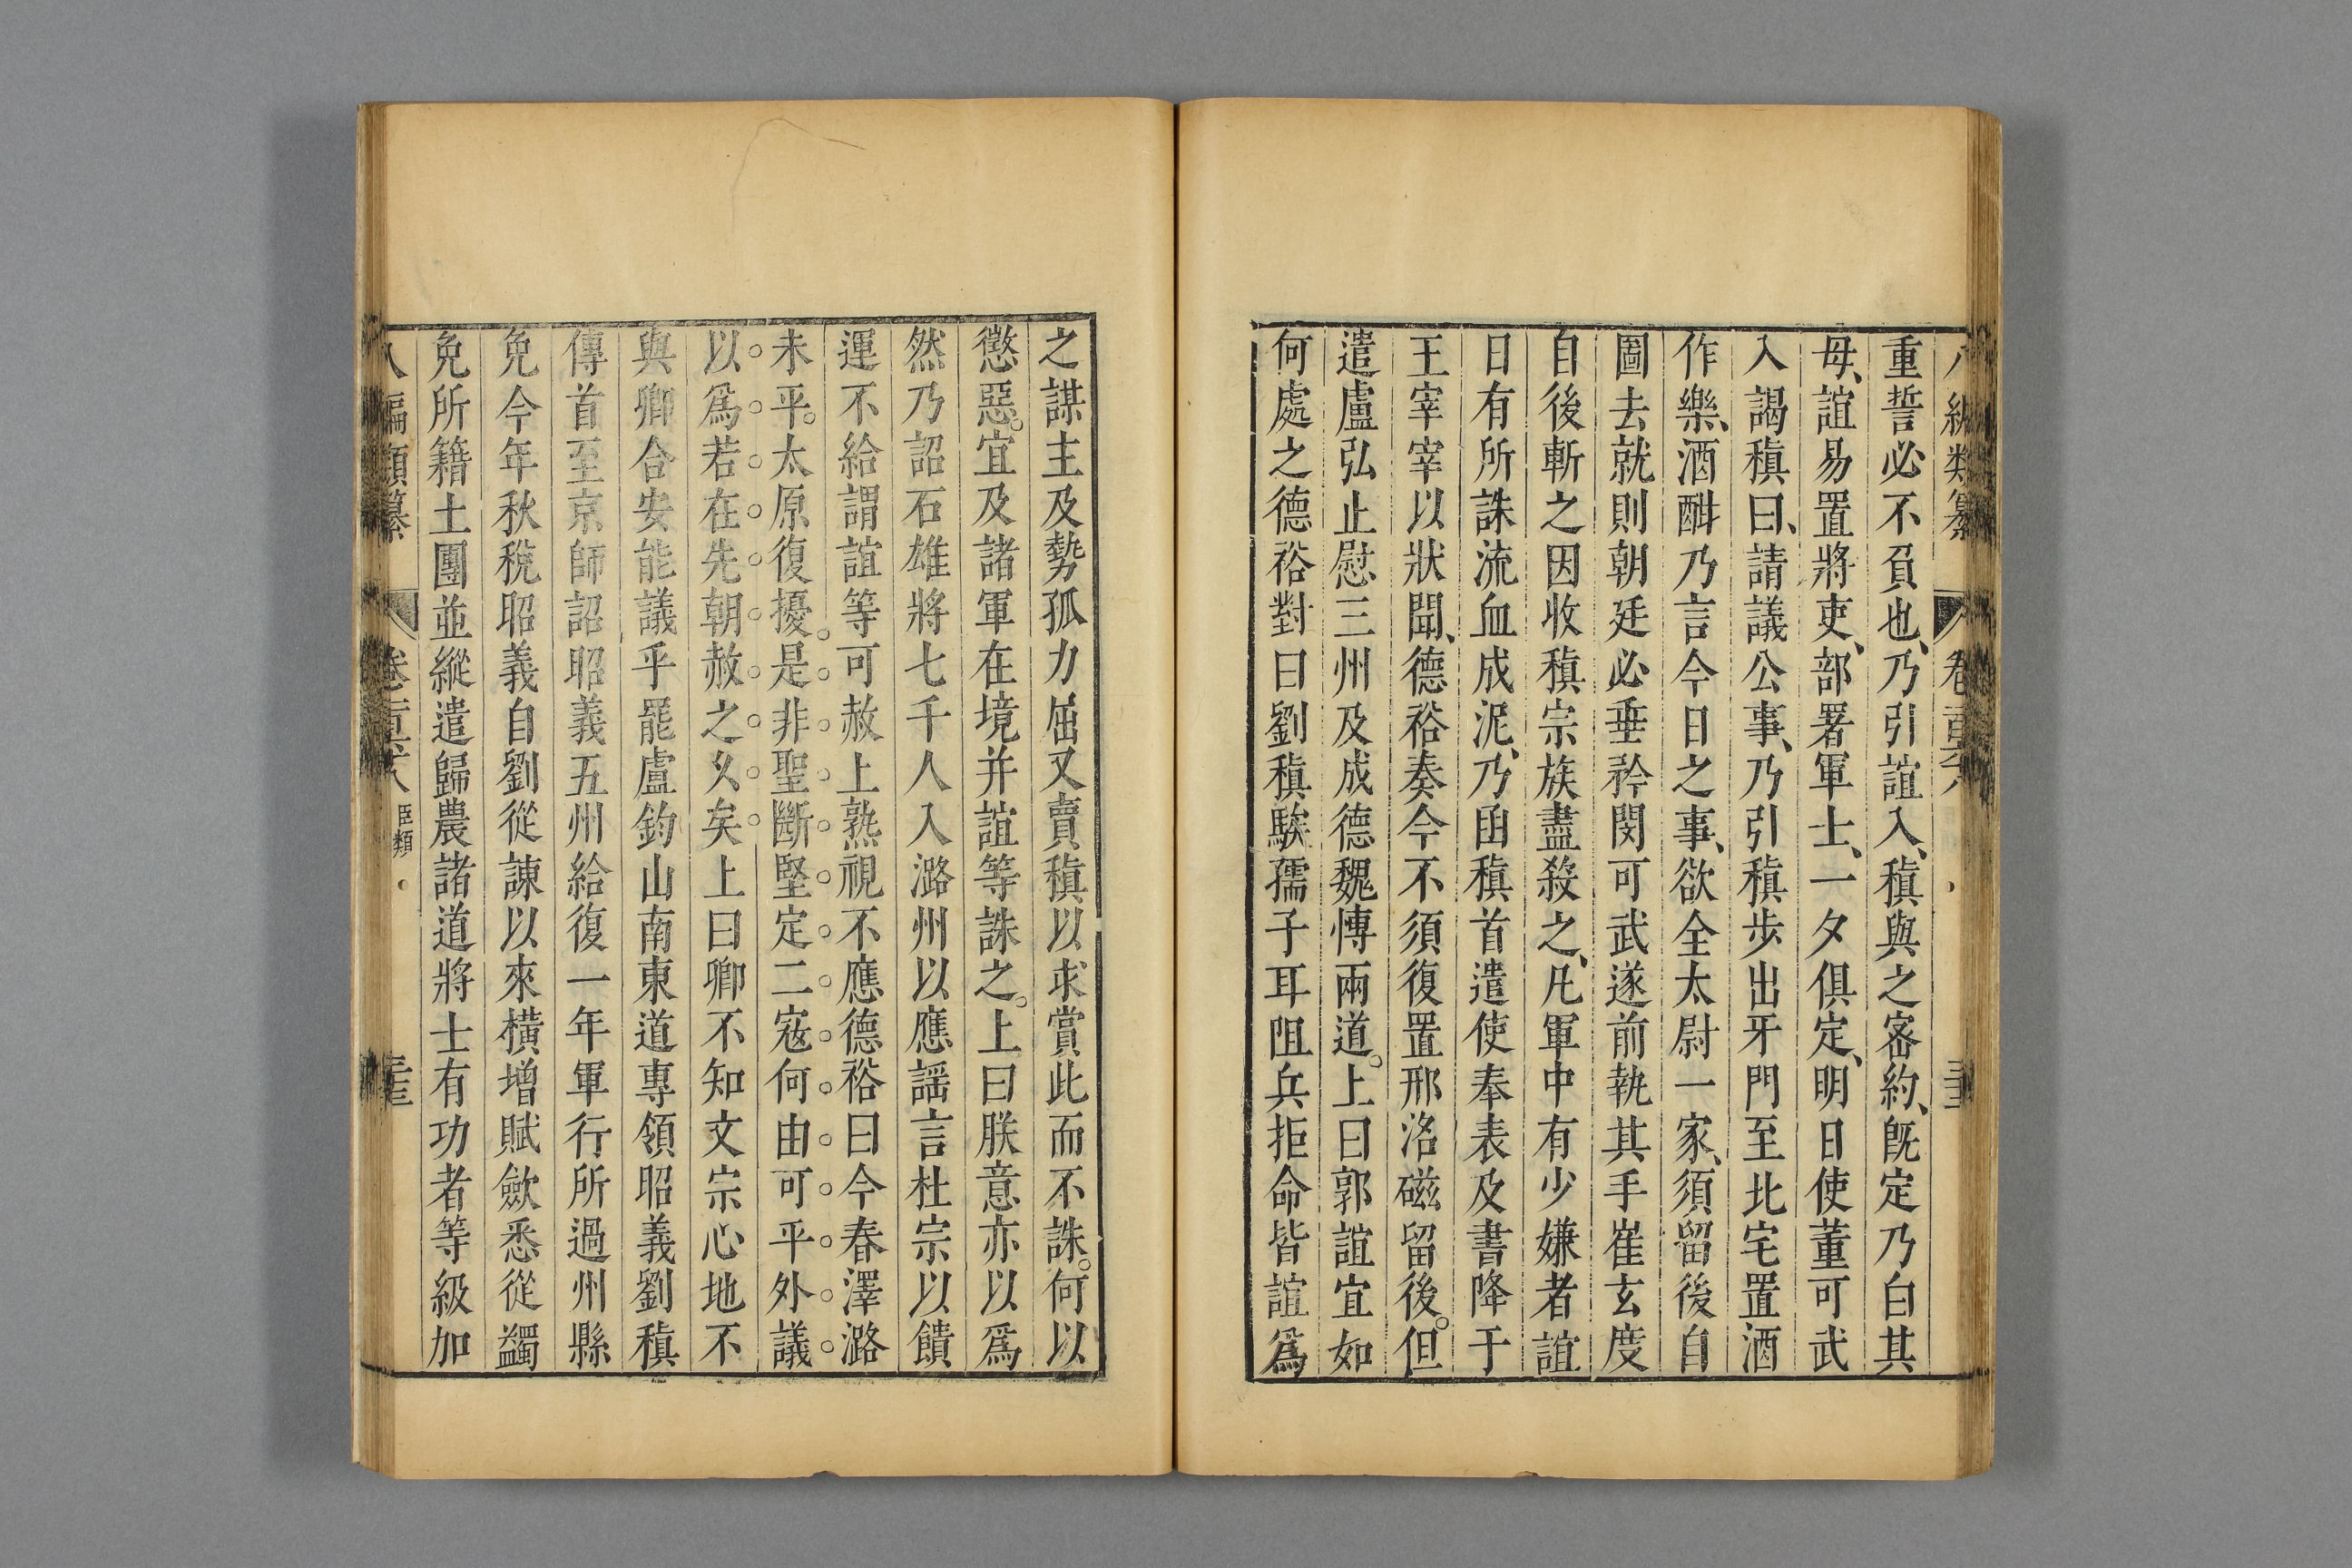 重誓必不負也、乃引誼入、稹與之密約、既定乃白其
母、誼易置將吏、部署軍士、一夕俱定、明日使董可武
入謁稹曰、請議公事、乃引稹步出牙門至北宅置酒
作樂、酒酣乃言今日之事、欲全太尉一家、須留後自
圖去就則朝廷必垂矜閔可武遂前執其手崔玄度
自後斬之因收稹宗族盡殺之、凡軍中有少嫌者誼
日有所誅流血成泥、乃函稹首遣使奉表及書降于
王宰宰以狀聞、德裕奏今不須復置邢洛磁留後。但
遣盧弘止慰三州及成德魏博兩道。上曰郭誼宜如
何處之德裕對曰劉稹騃孺子耳阻兵拒命皆誼爲
之謀主及勢孤力屈又賣稹以求賞此而不誅。何以
懲惡。宜及諸軍在境并誼等誅之。上曰朕意亦以爲
然乃詔石雄將七千人入潞州以應謡言杜宗以饋
運不給謂誼等可赦上熟視不應德裕曰今春澤潞
未平。太原復擾。是非聖斷堅定二寇何由可平外議
以爲若在先朝赦之久矣上曰卿不知文宗心地不
與卿合安能議乎罷盧鈞山南東道專領昭義劉稹
傳首至京師詔昭義五州給復一年軍行所過州縣
免今年秋稅昭義自劉從諫以來橫增賦歛悉從蠲
免所籍土團並縱遣歸農諸道將士有功者等級加
八編類纂 臣類